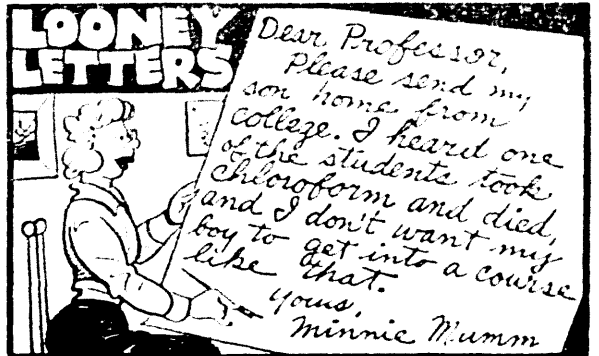 LOONEY
LETTERS
Dear Professor,
Please send my
son home from
college. I heard one
of the students took
chloroform and died,
and I don't want my
boy to get into a course
like that.
Yours,
Minnie Mumm